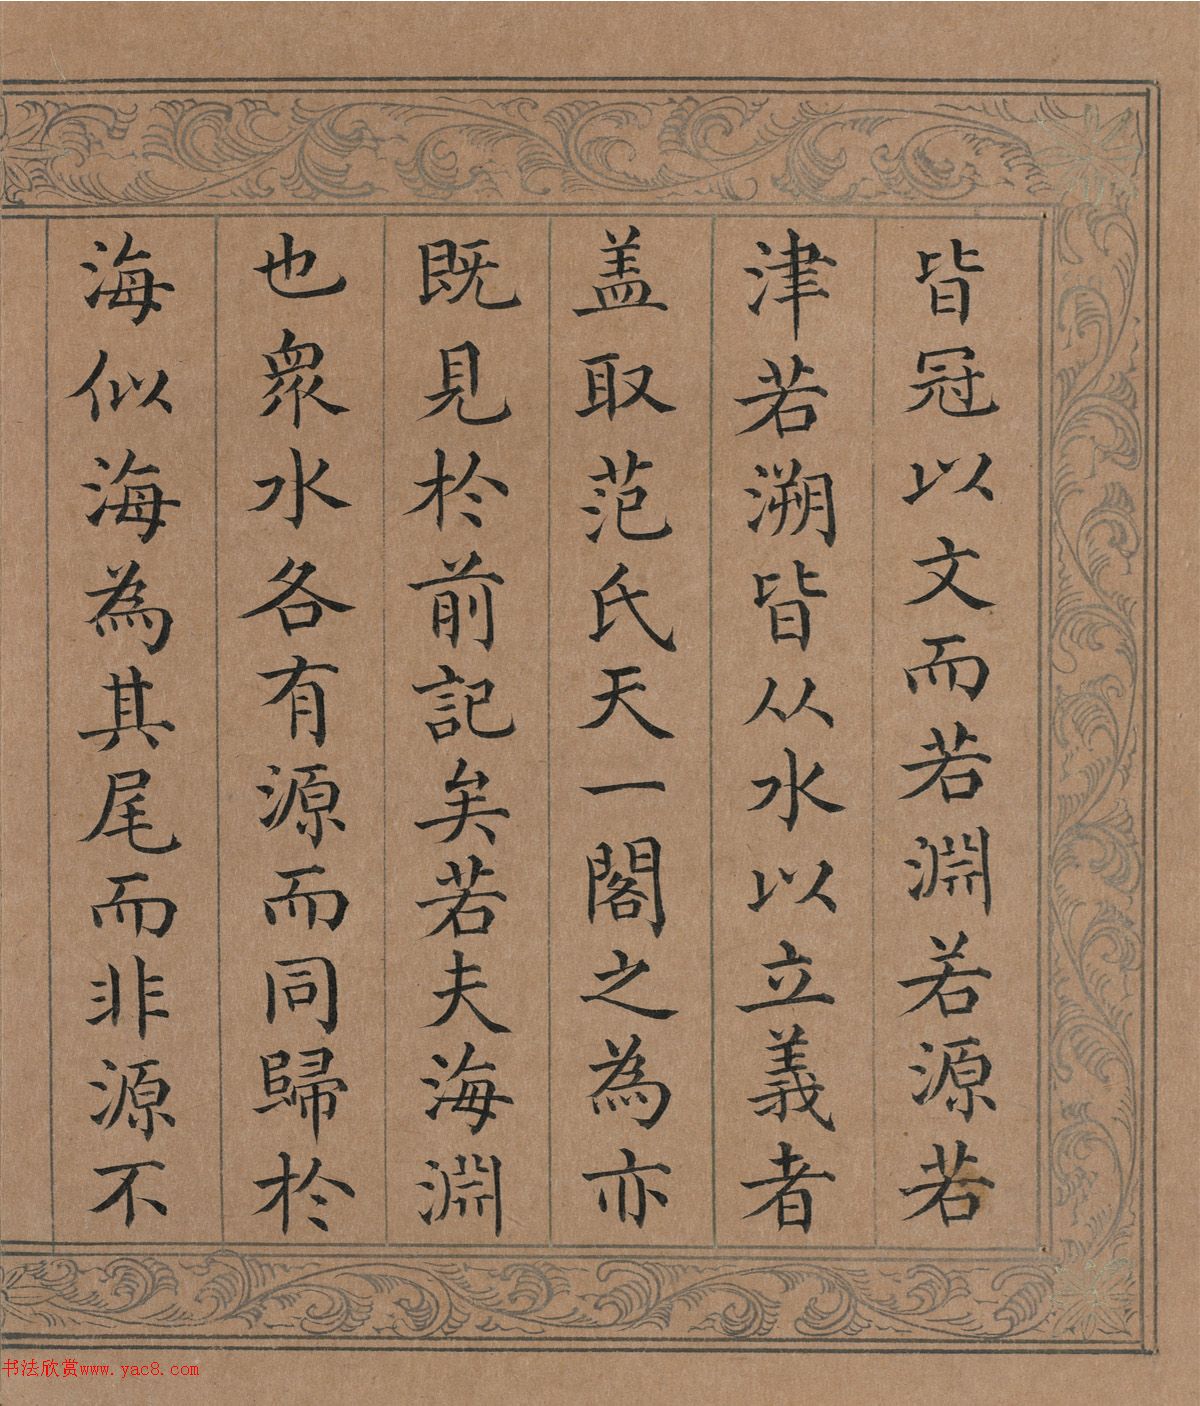 皆冠以文而若淵若源若
津若溯皆从水以立義者
盖取范氏天一閣之為亦
既見於前記矣若夫海淵
也衆水各有源而同歸於
海似海為其尾而非源不
书法欣赏www.yac8.com